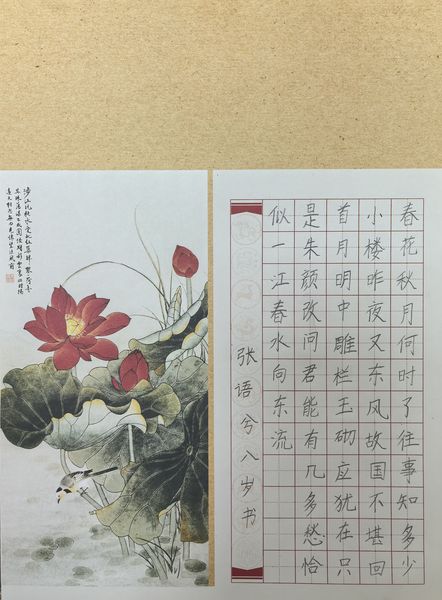 春花秋月何时了往事知多少
小楼昨夜又东风故国不堪回
首月明中雕栏玉砌应犹在只
是朱颜改问君能有几多愁恰
似一江春水向东流
张语兮八岁书